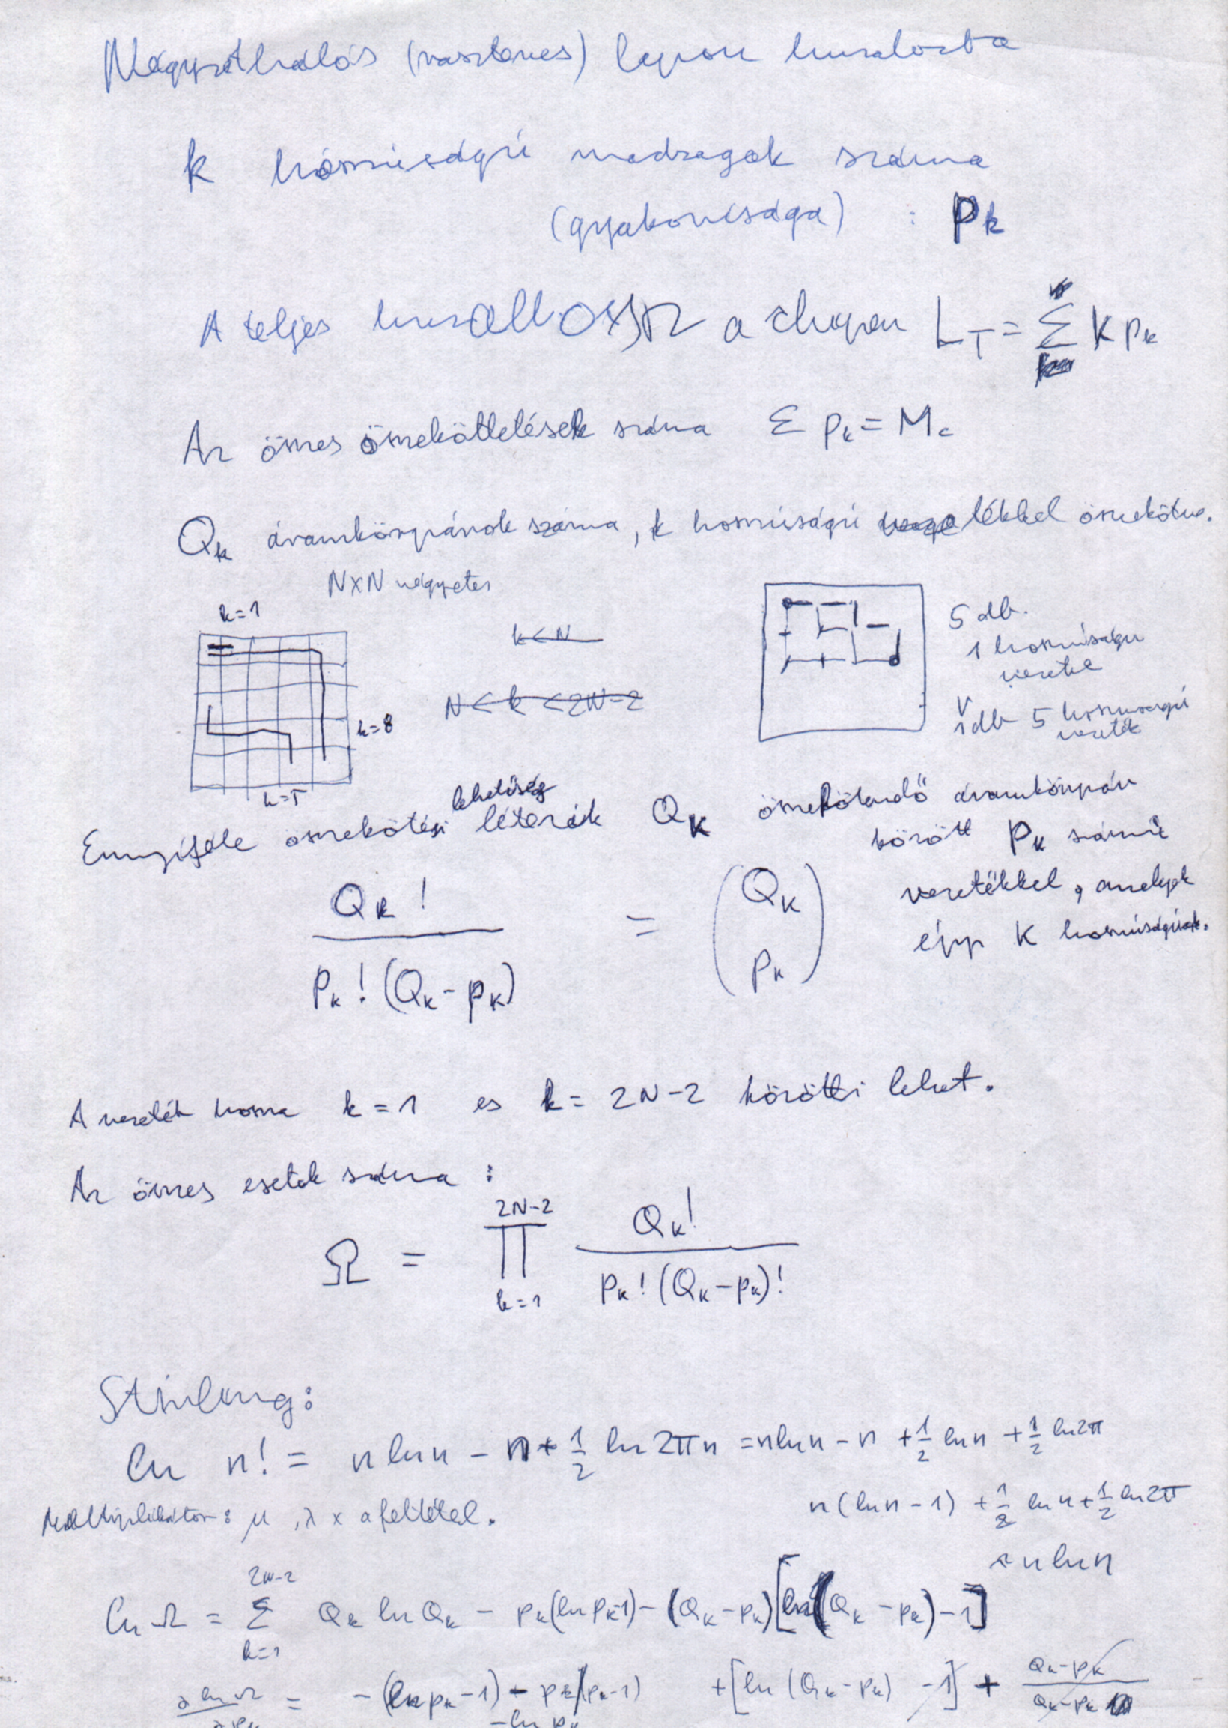 Négyzethálós (vasztenes) lapon huzalozta
k hosszúságú madzagok száma
(gyakorisága) : pk
A teljes huzal a chipen L_T = Σ k pk
Az összes összeköttetések száma Σ pk = Mc
Qk áramkörpárok száma, k hosszúságú vezetékkel összekötve.
N×N négyzetes
k=1
k<N
N<k<2N-2
k=8
k=5
5 db.
1 hosszúságú
vezeték
v
1 db 5 hosszúságú
vezeték
Ennyiféle összekötési lehetőség létezik Qk összekötendő áramkörpár
között pk számú
vezetékkel, amelyek
épp K hosszúságúak.
Qk! / pk! (Qk - pk) = (Qk pk)
A vezeték hossza k = 1 és k = 2N-2 közötti lehet.
Az összes esetek száma :
Ω = ∏ k=1 2N-2 Qk! / pk! (Qk - pk)!
Stirling:
ln n! = n ln n - n + 1/2 ln 2πn = n ln n - n + 1/2 ln n + 1/2 ln 2π
n (ln n - 1) + 1/2 ln n + 1/2 ln 2π
≈ n ln n
Multiplikátor: μ, λ x a feltétel.
ln Ω = Σ k=1 2N-2 Qk ln Qk - pk (ln pk - 1) - (Qk - pk) [ln (Qk - pk) - 1]
∂ ln Ω / ∂ pk = - (ln pk - 1) - pk (pk - 1) + [ln (Qk - pk) - 1] + Qk - pk / Qk - pk
- ln pk